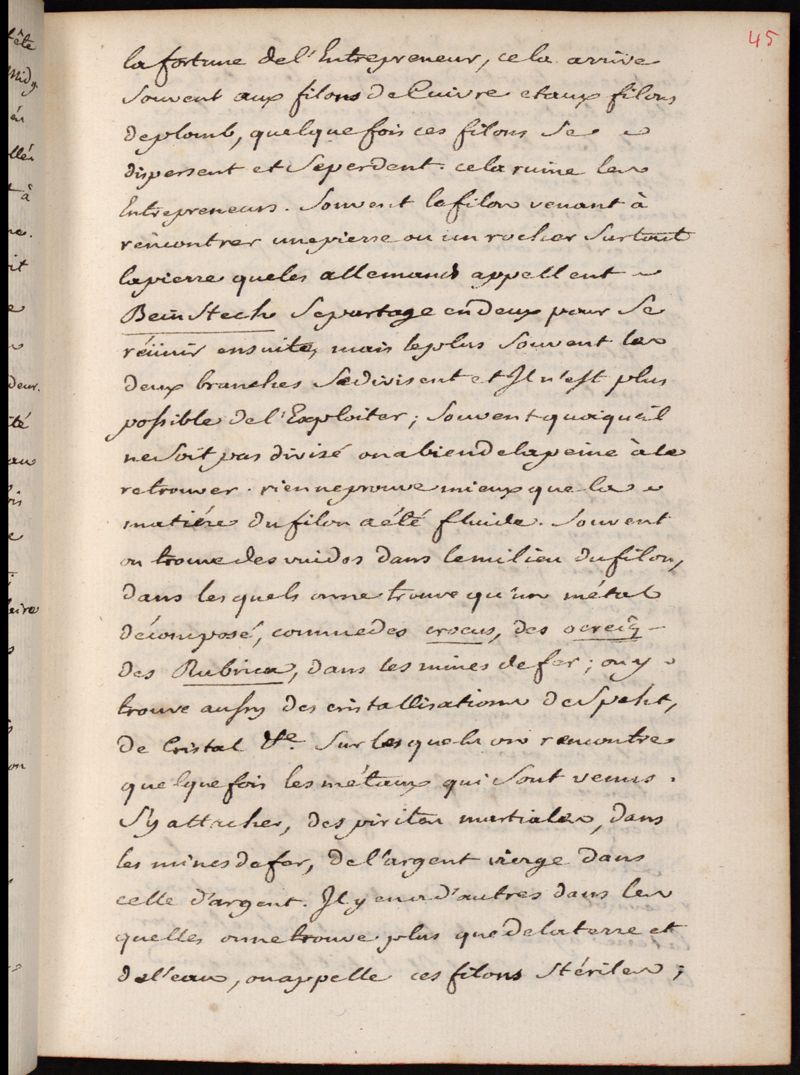 45
la fortune de l'Entrepreneur, cela arrive
souvent aux filons de Cuivre et aux filons
de plomb, quelque fois ces filons se
dispersent et se perdent. cela ruine les
Entrepreneurs. Souvent le filon venant à
rencontrer une pierre ou un rocher surtout
la pierre que les allemands appellent
Bein Stech se partage en deux pour se
réünir ensuite, mais le plus souvent les
deux branches se divisent et Il n'est plus
possible de l'Exploiter; souvent quoiqu'il
ne soit pas divisé on a bien de la peine à le
retrouver. rien ne prouve mieux que la
matiére du filon a été fluide. Souvent
on trouve des vuides dans le milieu du filon,
dans les quels on ne trouve qu'un métal
décomposé, comme des crocus, des
des Rubrica, dans les mines de fer; on y
trouve aussy des cristallisations de Spaht,
de Cristal &c. sur les quels on rencontre
quelque fois les métaux qui sont venus
s'y attacher, des pirites martiales, dans
les mines de fer, de l'argent vierge dans
celle d'argent. Il y en a d'autres dans les
quelles on ne trouve plus que de la terre et
de l'eau, on appelle ces filons stériles;
tête
Midy
à
deur.
ité